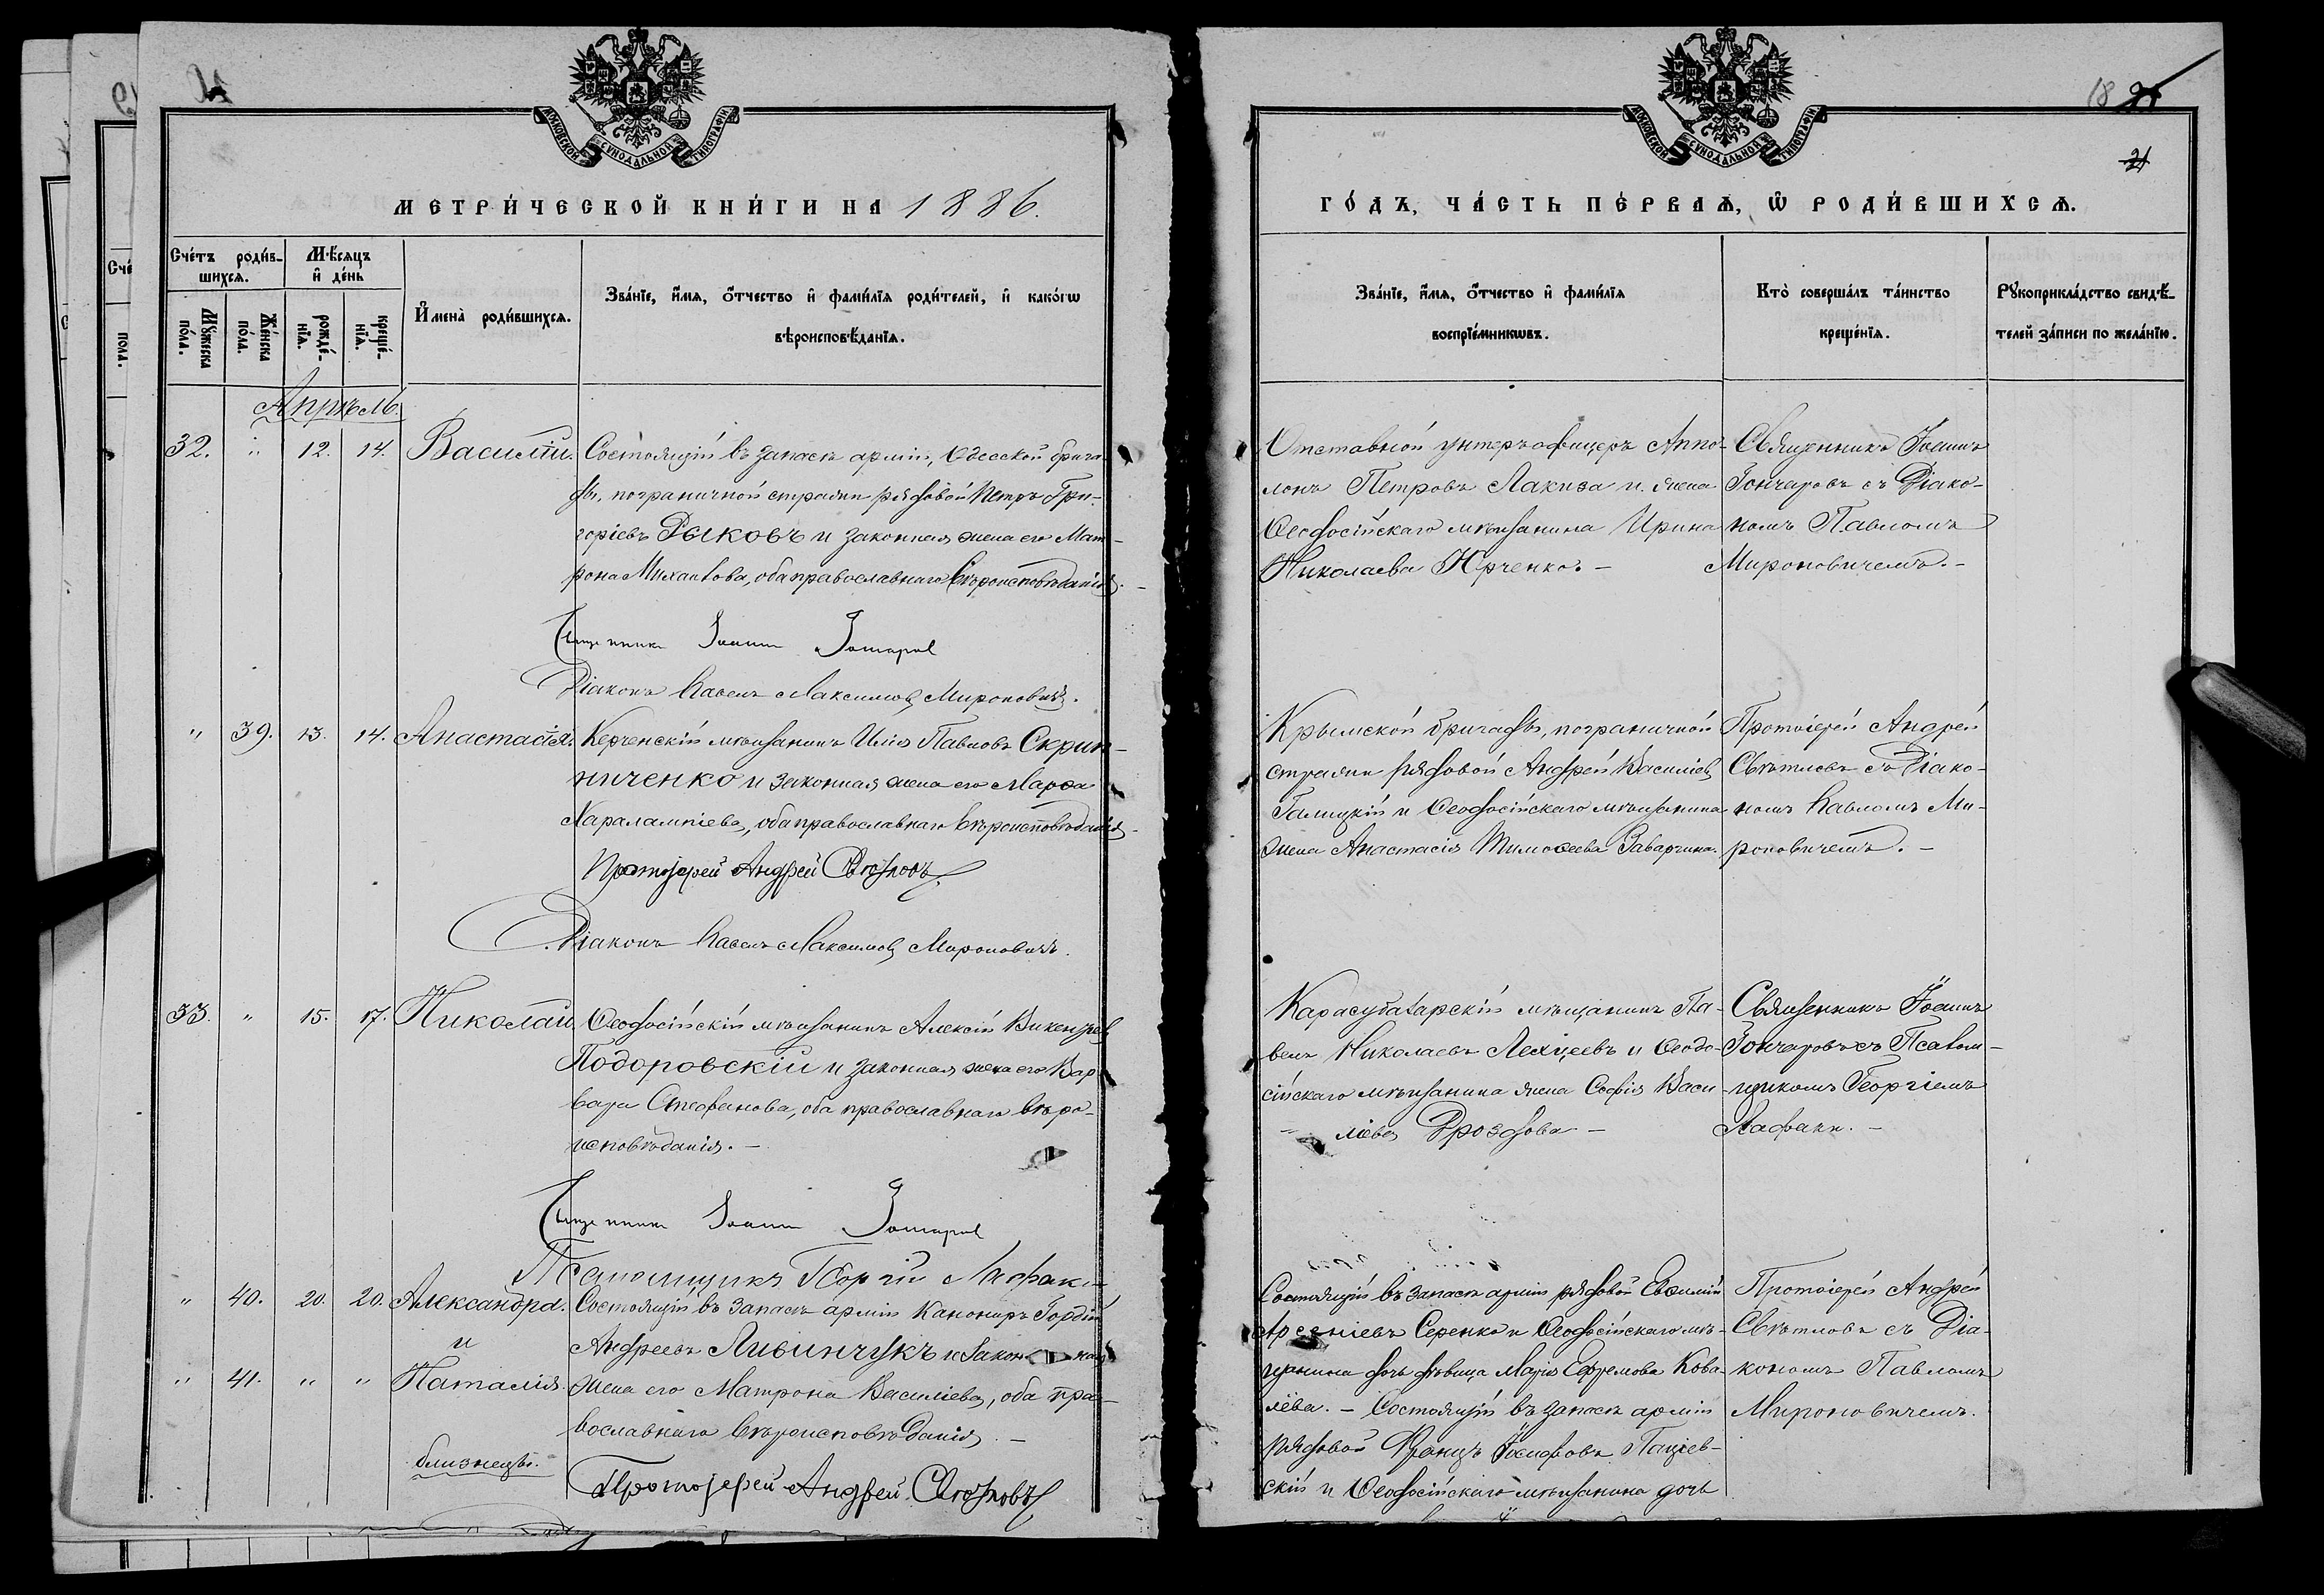 МОСКОВСКОЙ СѴНОДАЛЬНОЙ ТИПОГРАФІИ
МЕТРИ́ЧЕСКОЙ КНИ́ГИ НА 1886.
Сче́тъ роди́в-
шихсѧ.
Мѣ́сѧцъ
и҆ де́нь
Мꙋ́жеска
по́ла.
Же́нска
по́ла.
рожде́-
нїѧ.
креще́-
нїѧ.
И҆мена̀ роди́вшихсѧ.
Зва́нїе, и҆́мѧ, ѻ҆́тчество и҆ фамѝлїѧ роди́телей, и҆ како́гѡ
вѣроисповѣ́данїѧ.
Апрѣль.
32. " 12. 14. Василій. Состоящій въ запасѣ арміи, Одесской брига-
ды, пограничной стражи рядовой Петръ Гри-
горіевъ Рыковъ и законная жена его Мат-
рона Михаилова, оба православнаго вѣроисповѣданія. -
Священникъ Іоаннъ Гончаровъ
Діаконъ Павелъ Максимовъ Мироновичъ.
" 39. 13. 14. Анастасія. Керченскій мѣщанинъ Илія Павловъ Скрин-
ниченко и законная жена его Марѳа
Харалампіева, оба православнаго вѣроисповѣданія.
Протоіерей Андрей Свѣтловъ
Діаконъ Павелъ Максимовъ Мироновичъ.
33. " 15. 17. Николай. Ѳеодосійскій мѣщанинъ Алексій Викентіевъ
Подоровскій и законная жена его Вар-
вара Стефанова, оба православнаго вѣро-
исповѣданія. -
Священникъ Іоаннъ Гончаровъ
Псаломщикъ Георгій Лафаки
" 40. 20. 20. Александра. Состоящій въ запасѣ арміи канониръ Гордій
и Андреевъ Ливинчукъ и законная
" 41. " " Наталія. жена его Матрона Василіева, оба пра-
вославнаго вѣроисповѣданія. -
близнецы.
Протоіерей Андрей Свѣтловъ
МОСКОВСКОЙ СѴНОДАЛЬНОЙ ТИПОГРАФІИ
18
21
ГО́ДЪ, ЧА́СТЬ ПЕ́РВАѦ, Ѡ҆ РОДИ́ВШИХСѦ.
Зва́нїе, и҆́мѧ, ѻ҆́тчество и҆ фами́лїѧ
воспрїе́мникѡвъ.
Кто̀ соверша́лъ та́инство
креще́нїѧ.
Рꙋкоприкла́дство свидѣ́-
телей за́писи по жела́нїю.
Отставной унтеръ офицеръ Аппо-
лонъ Петровъ Лакиза и жена
Ѳеодосійскаго мѣщанина Ирина
Николаева Юрченко. -
Священникъ Іоаннъ
Гончаровъ съ Діако-
номъ Павломъ
Мироновичемъ. -
Крымской бригады, пограничной
стражи рядовой Андрей Василіевъ
Галицкій и Ѳеодосійскаго мѣщанина
жена Анастасія Тимоѳеева Заварзина.
Протоіерей Андрей
Свѣтловъ съ Діако-
номъ Павломъ Ми-
роновичемъ. -
Карасубазарскій мѣщанинъ Па-
велъ Николаевъ Лехцеевъ и Ѳеодо-
сійскаго мѣщанина жена Софія Васи-
ліева Дроздова -
Священникъ Іоаннъ
Гончаровъ съ Псалом-
щикомъ Георгіемъ
Лафаки. -
Состоящій въ запасѣ арміи рядовой Евѳимій
Арсеніевъ Серенко и Ѳеодосійскаго мѣ-
щанина дочь дѣвица Марія Ефремова Кова-
лёва. - Состоящій въ запасѣ арміи
рядовой Францъ Іосифовъ Паціев-
скій и Ѳеодосійскаго мѣщанина дочь
Протоіерей Андрей
Свѣтловъ съ Діа-
кономъ Павломъ
Мироновичемъ.